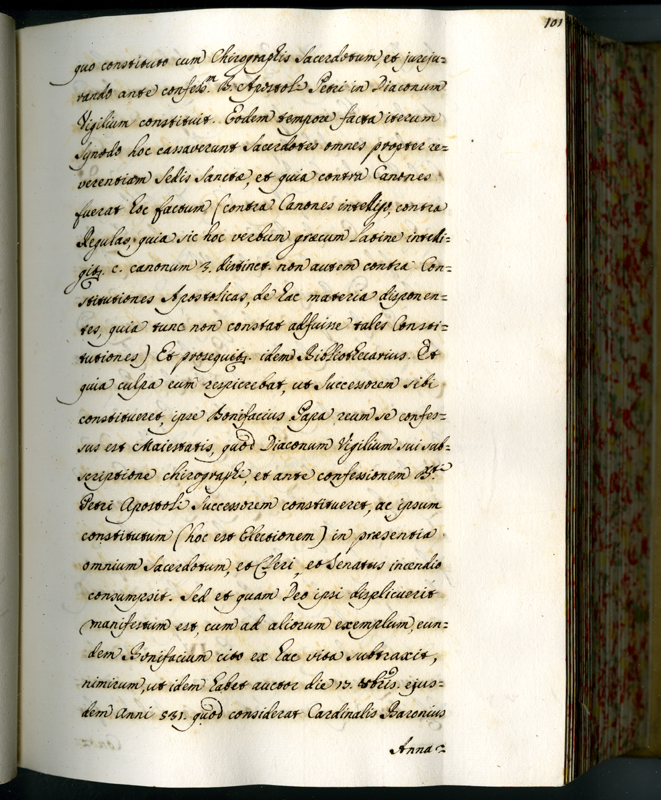 101
quo constituto cum Chirographis Sacerdotum, et jureju=
rando ante confess.m B. Apostoli Petri in Diaconum
Vigilium constituit. Eodem tempore facta iterum
Synodo hoc cassaverunt Sacerdotes omnes propter re=
verentiam Sedis Sanctæ, et quia contra Canones
fuerat hoc factum (contra Canones intelligo, contra
Regulas, quia sic hoc verbum græcum Latine intelli=
gitr. c. canonum 3. distinct. non autem contra Con=
stitutiones Apostolicas, de hac materia disponen=
tes, quia tunc non constat adfuisse tales Consti=
tutiones) Et prosequitr. idem Bibliothecarius. Et
quia culpa eum respiciebat, ut Successorem sibi
constitueret, ipse Bonifacius Papa reum se confes=
sus est Maiestatis, quod Diaconum Vigilium sui sub=
scriptione chirographi, et ante confessionem B.ti
Petri Apostoli Successorem constitueret, ac ipsum
constitutum (hoc est Electionem) in præsentia
omnium Sacerdotum, et Cleri, et Senatus incendio
consumpsit. Sed et quam Deo ipsi displicuerit
manifestum est, cum ad aliorum exemplum, eun=
dem Bonifacium cito ex hac vita subtraxit,
nimirum, ut idem habet auctor die 13. ejus=
dem Anni 531. quod considerat Cardinalis Baronius
Anna=